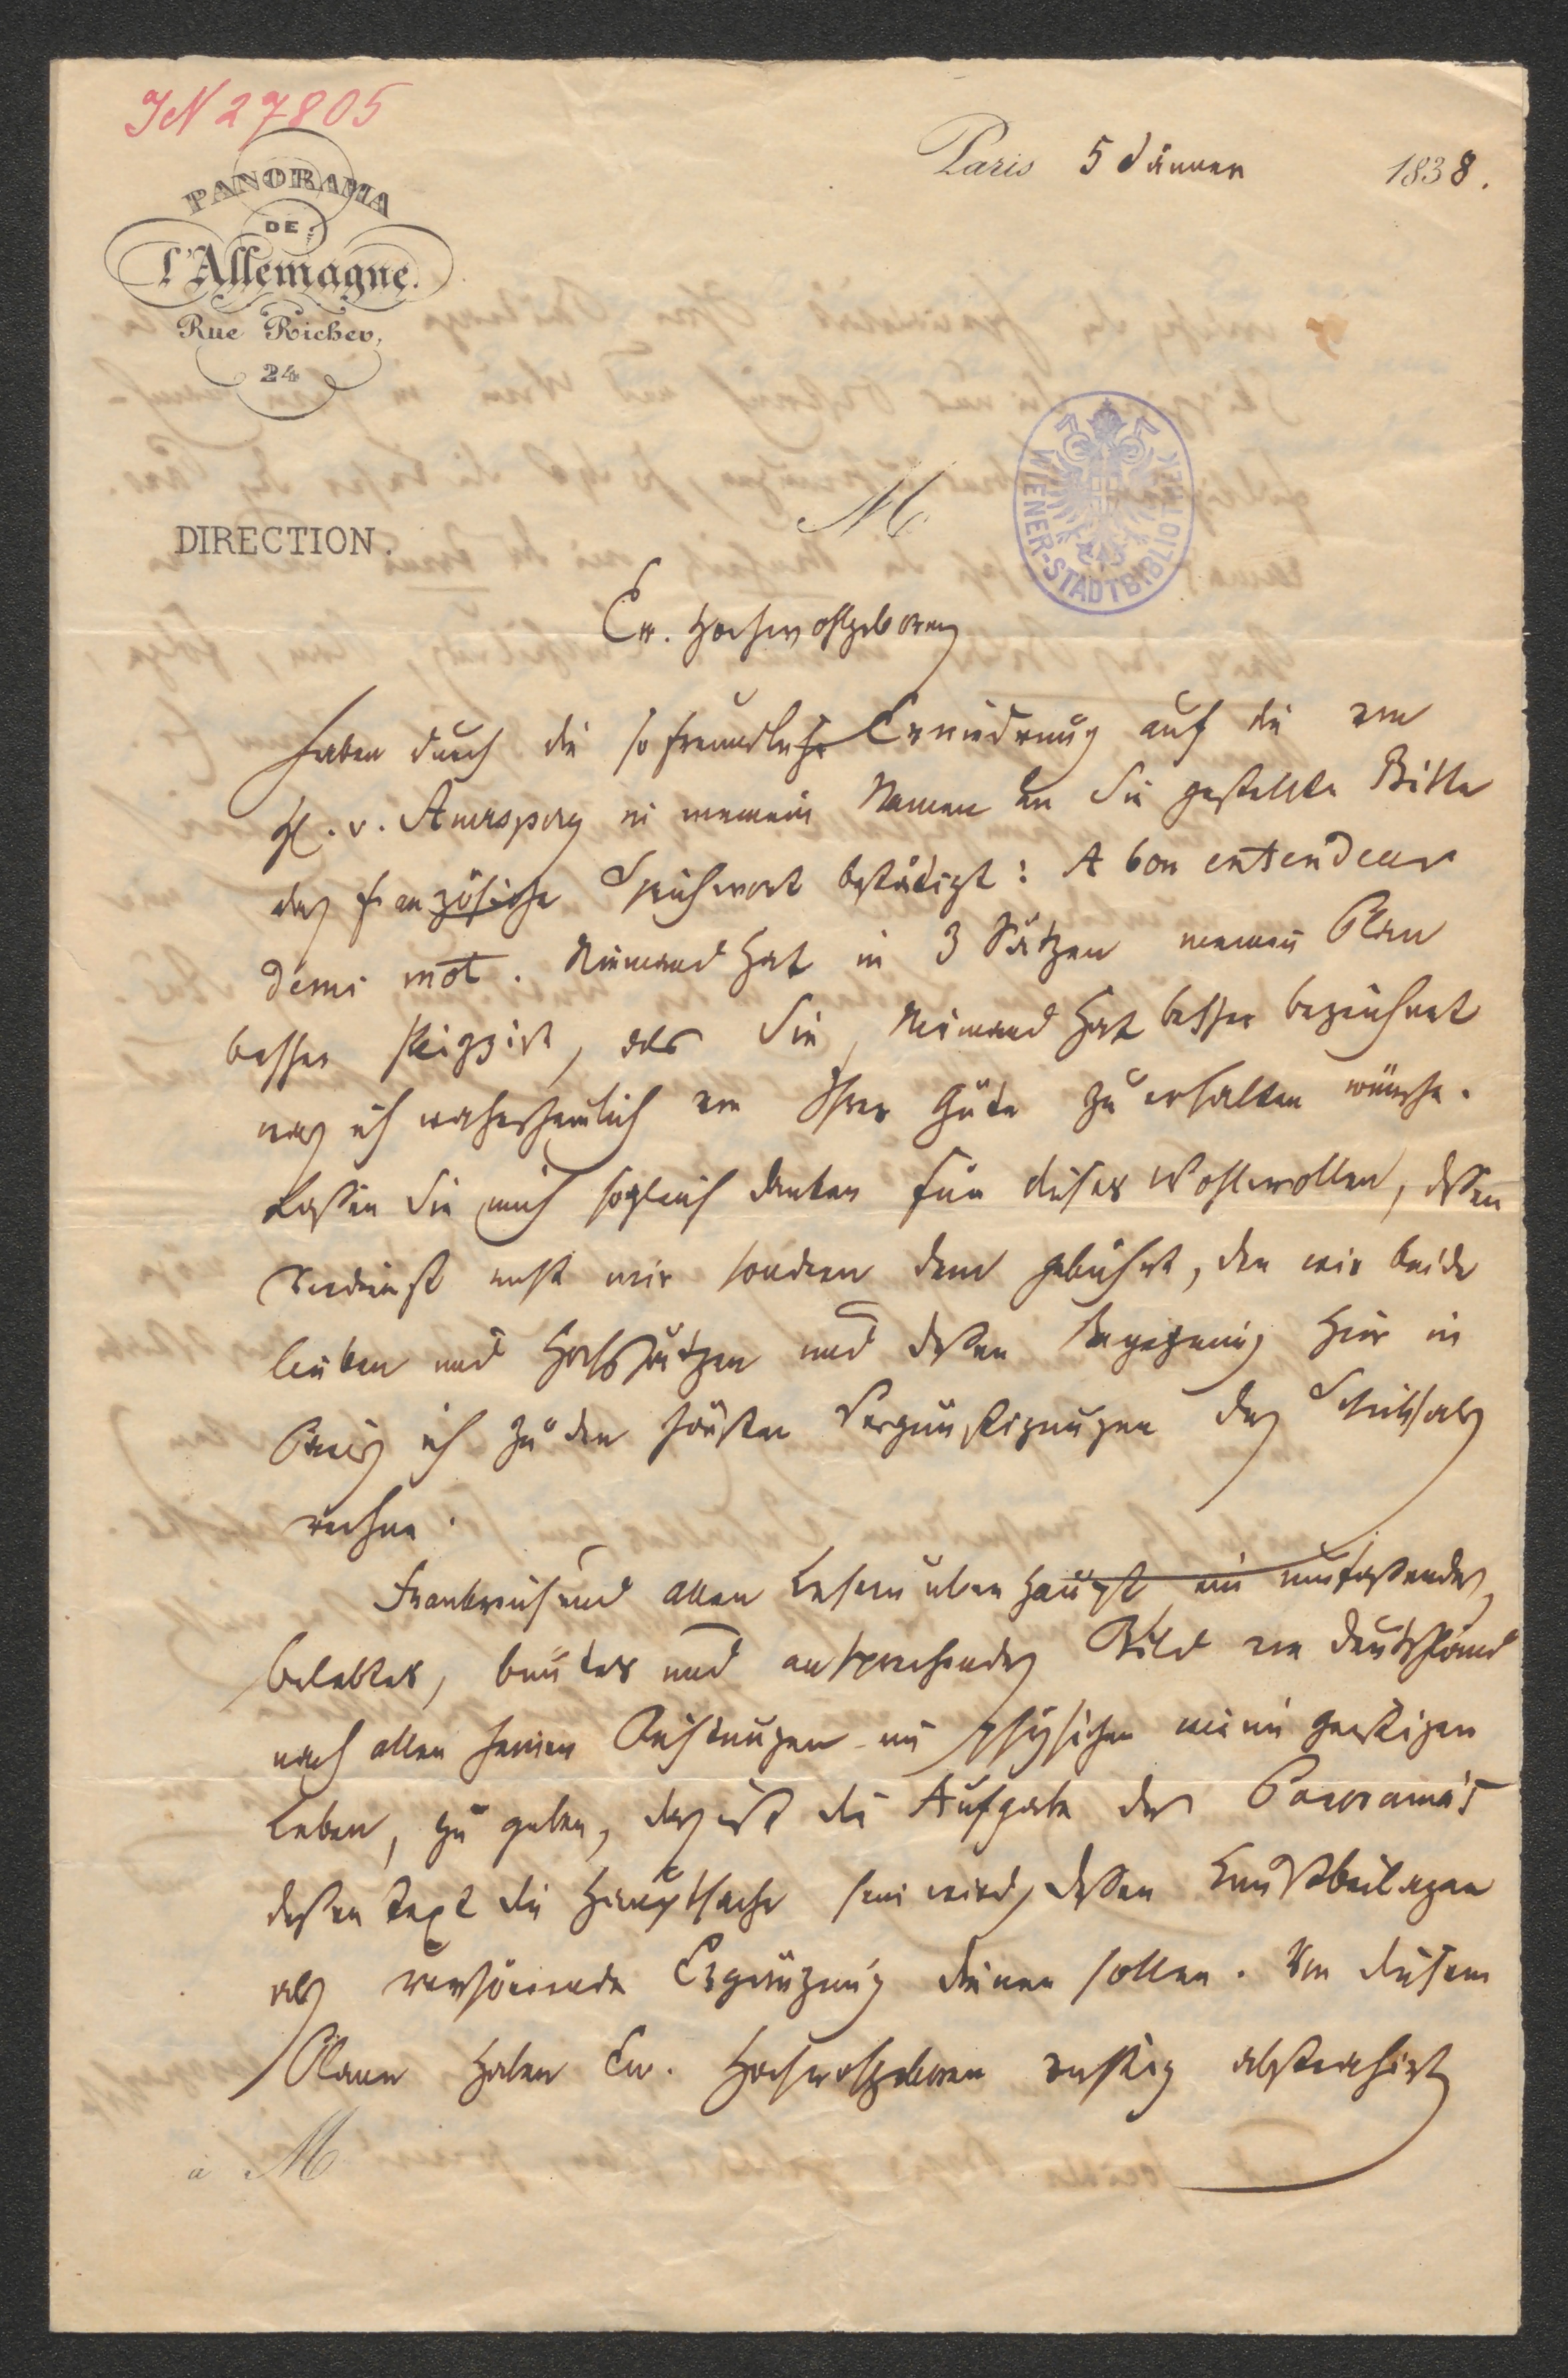 IN 27805
PANORAMA
DE
L'Allemagne.
Rue Richer,
24
Paris 5 Jänner 1838.
DIRECTION.
M
WIENER-STADTBIBLIOTHEK
Ew. Hochwohlgeboren
haben durch die so freundliche Erwiederung auf die von
Gf. v. Auersperg in meinem Namen an Sie gestellte Bitte
das französische Sprichwort bestätigt: A bon entendeur
demi mot. Niemand hat in 3 Sätzen meinen Plan
besser skizzirt, als Sie, Niemand hat besser bezeichnet
was ich wahrscheinlich von Ihrer Güte zu erhalten wünsche.
Lassen Sie mich sogleich danken für dieses Wohlwollen, dessen
Verdienst nicht mir sondern dem gebührt, den wir beide
lieben und hochschätzen und dessen Begegnung hier in
Paris ich zu den schönsten Vergünstigungen des Schicksals
rechne.
Frankreich und allen Lesern überhaupt ein umfassendes,
belebtes, buntes und ansprechendes Bild von Deutschland
nach allen seinen Richtungen im physischen wie im geistigen
Leben, zu geben, das ist die Aufgabe des Panorama's
dessen Text die Hauptsache sein wird, dessen Kunstbeilagen
als verschönernde Ergänzung dienen sollen. Von diesem
Plane haben Ew. Hochwohlgeboren richtig abstrahirt
à M